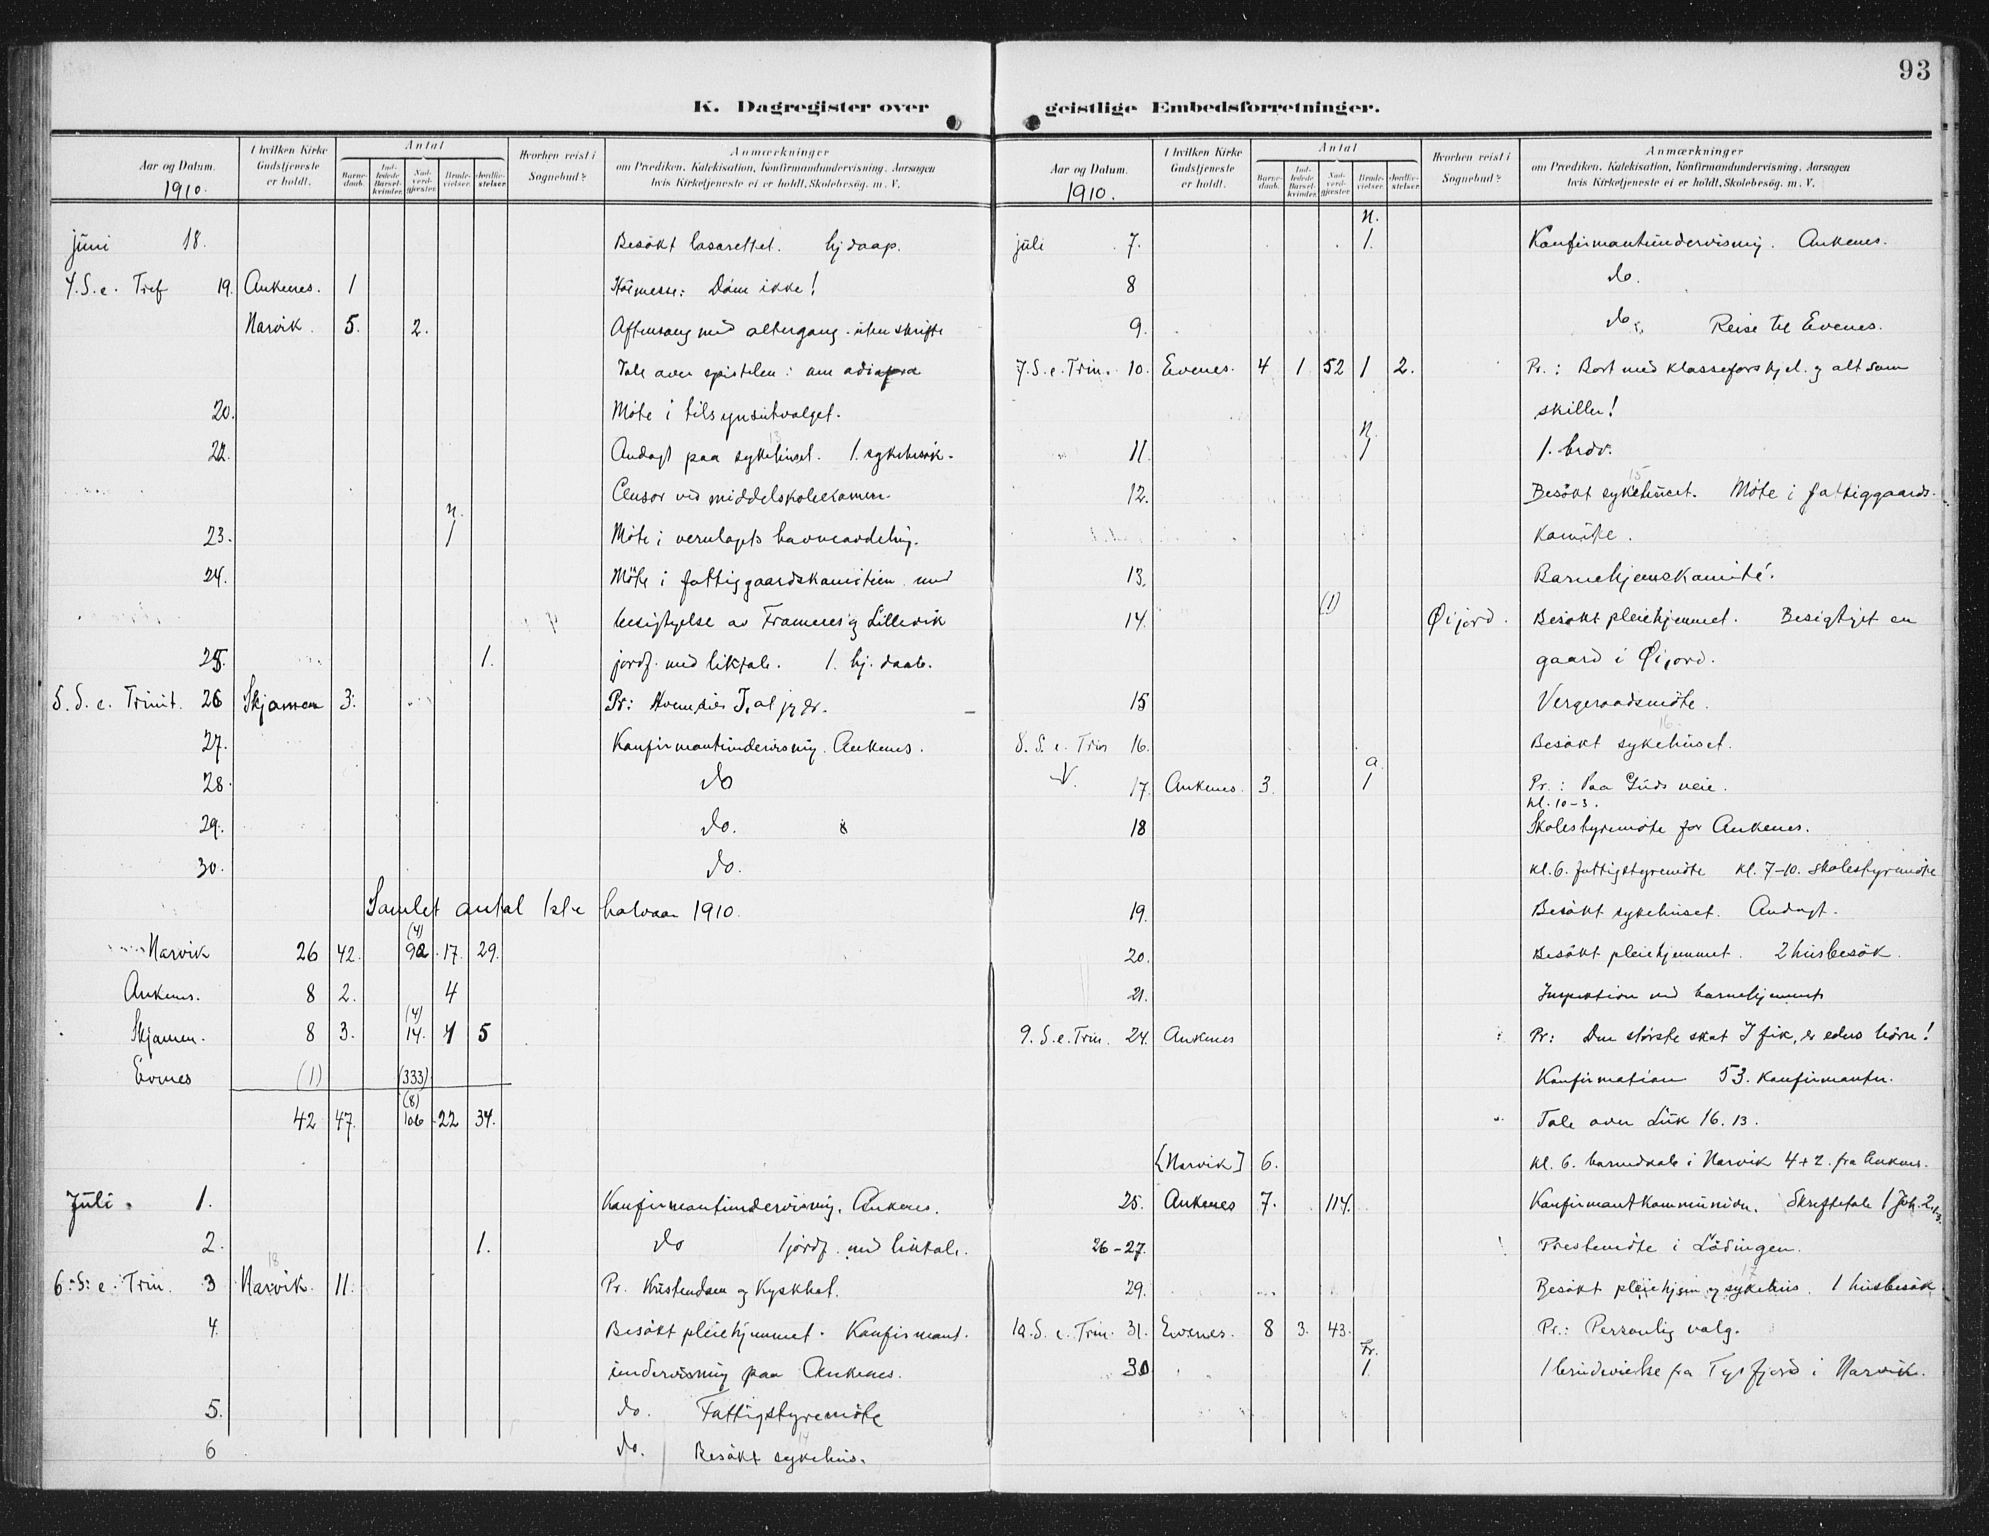 93
K. Dagregister over geistlige Embedsforretninger.
Aar og Datum. 1910.
I hvilken Kirke Gudstjeneste er holdt.
Antal
Barne-daab.
Ind-ledede Barsel-kvinder.
Nad-verd-gjester.
Brude-vielser.
Jordfæ-stelser.
Hvorhen reist i Sognebud?
Anmærkninger
om Prædiken, Katekisation, Konfirmandundervisning, Aarsagen
hvis Kirketjeneste ei er holdt, Skolebesøg. m. V.
juni 18. Besökt lasarettet. hj.daap.
4. S. e. Tref 19. Ankenes. 1 Höimesse: Döm ikke!
Narvik. 5. 2. Aftensang med altergang uten skrifte
Tale over epistelen: om adiafora
20. Möte i tilsynsutvalget.
22. Andagt paa sykehuset. 13 1. sykebesök.
Censor ved middelskoleeksamen.
23. n. 1 Möte i vernelagets havneavdeling.
24. Möte i fattiggaardskomiteen med
besigtyelse av Framnes og Lillevik
25. 1. jordf. med liktale. 1. hj. daab.
5. S. e. Trinit. 26 Skjomen 3. Pr: Hvem sier I, at jeg er.
27. Konfirmantundervisning. Ankenes.
28. do
29. do.
30. do.
Samlet antal 1ste halvaar 1910.
Narvik 26 42. (4) 92 17. 29.
Ankenes. 8 2. 4
Skjomen. 8 3. (4) 14. 1 5
Evenes (1) (333)
42 47. (8) 106 22 34.
Juli. 1. Konfirmantundervisning. Ankenes.
2. 1. do 1 jordf. med liktale.
6. S. e. Trin. 3 Narvik. 18 11. Pr. Kristendom og Kyskhet.
4. Besökt pleiehjemmet. Konfirmant.
undervisning paa Ankenes.
5. do. Fattigstyremöte
6 do. Besökt sykehus. 14
Aar og Datum. 1910.
I hvilken Kirke Gudstjeneste er holdt.
Antal
Barne-daab.
Ind-ledede Barsel-kvinder.
Nad-verd-gjester
Brude-vielser.
Jordfæ-stelser.
Hvorhen reist i Sognebud?
Anmærkninger
om Prædiken, Katekisation, Konfirmandundervisning, Aarsagen
hvis Kirketjeneste ei er holdt, Skolebesøg. m. V.
juli 7. n. 1. Konfirmantundervisning. Ankenes.
8 do.
9. do. Reise til Evenes.
7. S. e. Trin. 10. Evenes. 4 1 52 1 2. Pr.: Bort med klasseforskjel og alt som
skiller!
11. n. 1 1. brdv.
12. Besökt sykehuset. 15 Möte i fattiggaards-
komite.
13. Barnehjemskomité.
14. (1) Öijord. Besökt pleiehjemmet. Besigtiget en
gaard i Öijord.
15 Vergeraadsmöte.
8. S. e. Trin 16. Besökt sykehuset. 16
17. Ankenes. 3. a. 1 Pr.: Paa Guds veie.
kl. 10-3.
18 Skolestyremöte for Ankenes.
kl. 6. fattigstyremöte kl. 7-10. skolestyremöte
19. Besökt sykehuset. Andagt.
20. Besökt pleiehjemmet. 2 husbesök.
21. Inspektion ved barnehjemmet
9. S. e. Trin. 24. Ankenes Pr: Den störste skat I fik, er eders börn!
Konfirmation 53. konfirmanter.
Tale over Luk 16. 13.
[Narvik] 6. kl. 6. barnedaab i Narvik 4+2. fra Ankenes.
25. Ankenes 7. 114. Konfirmantkommunion. Skriftetale 1 Joh. 2, 1-3.
26-27. Prestemöte i Lödingen.
29. Besökt pleiehjem og sykehus. 17 1 husbesök
10. S. e. Trin. 31. Evenes. 8 3. 43. Pr.: Personlig valg.
30 Fr. 1. 1 brudevielse fra Tysfjord i Narvik.